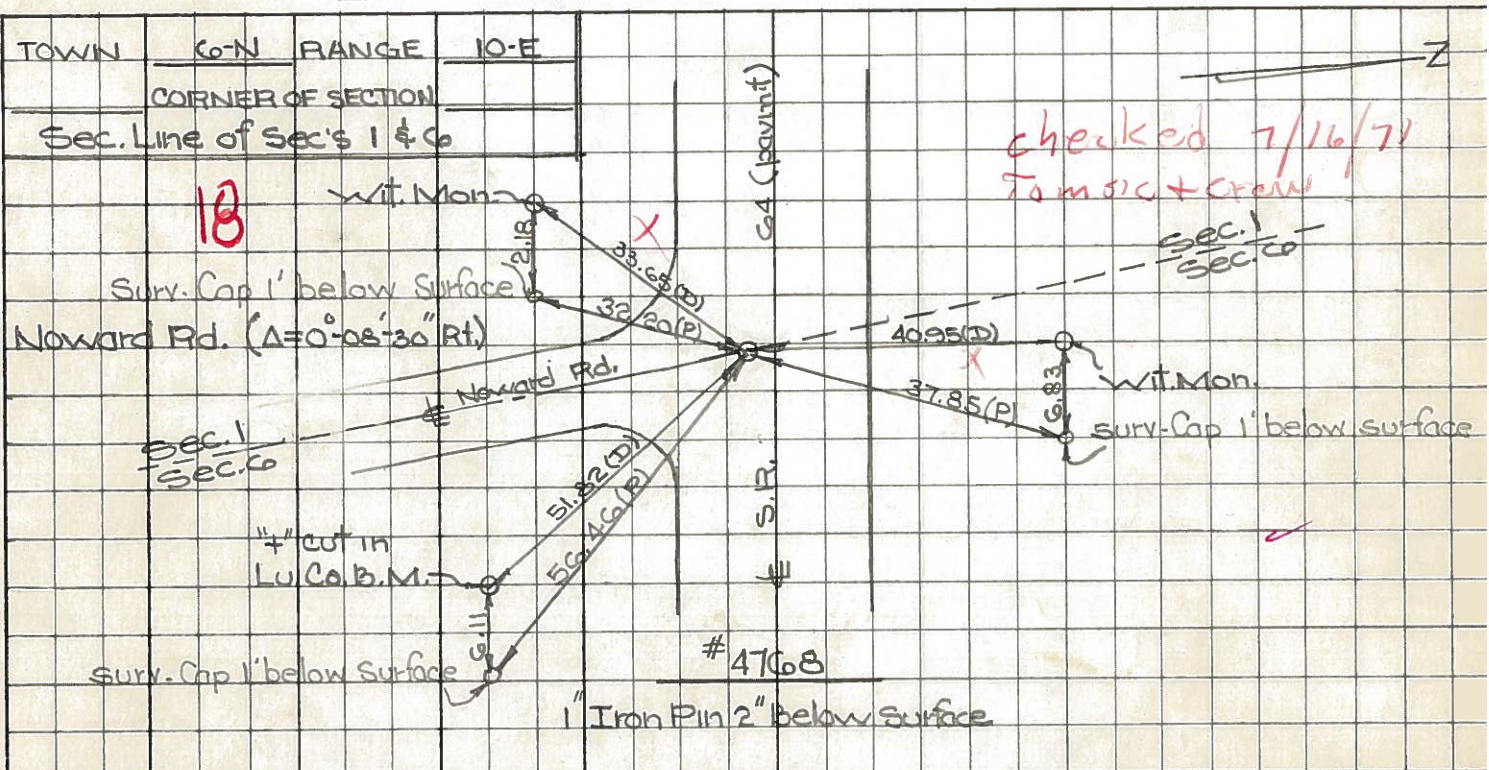 TOWN 6-N RANGE 10-E
CORNER OF SECTION
Sec. Line of Sec's 1 & 6
18
checked 7/16/71
Tomsic + Crew
N
64 (pavmt)
Wit. Mon.
2.18
33.65(D)
X
Sec. 1
Sec. 6
Surv. Cap 1' below Surface
32.20(P)
Noward Rd. (Δ=0°-08'-30" Rt.)
40.95(D)
X
Wit. Mon.
6.83
37.85(P)
Surv. Cap 1' below surface
℄ Noward Rd.
Sec. 1
Sec. 6
51.82(D)
56.46(P)
℄ S.R.
"+" cut in
Lu. Co. B.M.
6.11
Surv. Cap 1' below Surface
# 4768
1" Iron Pin 2" Below Surface